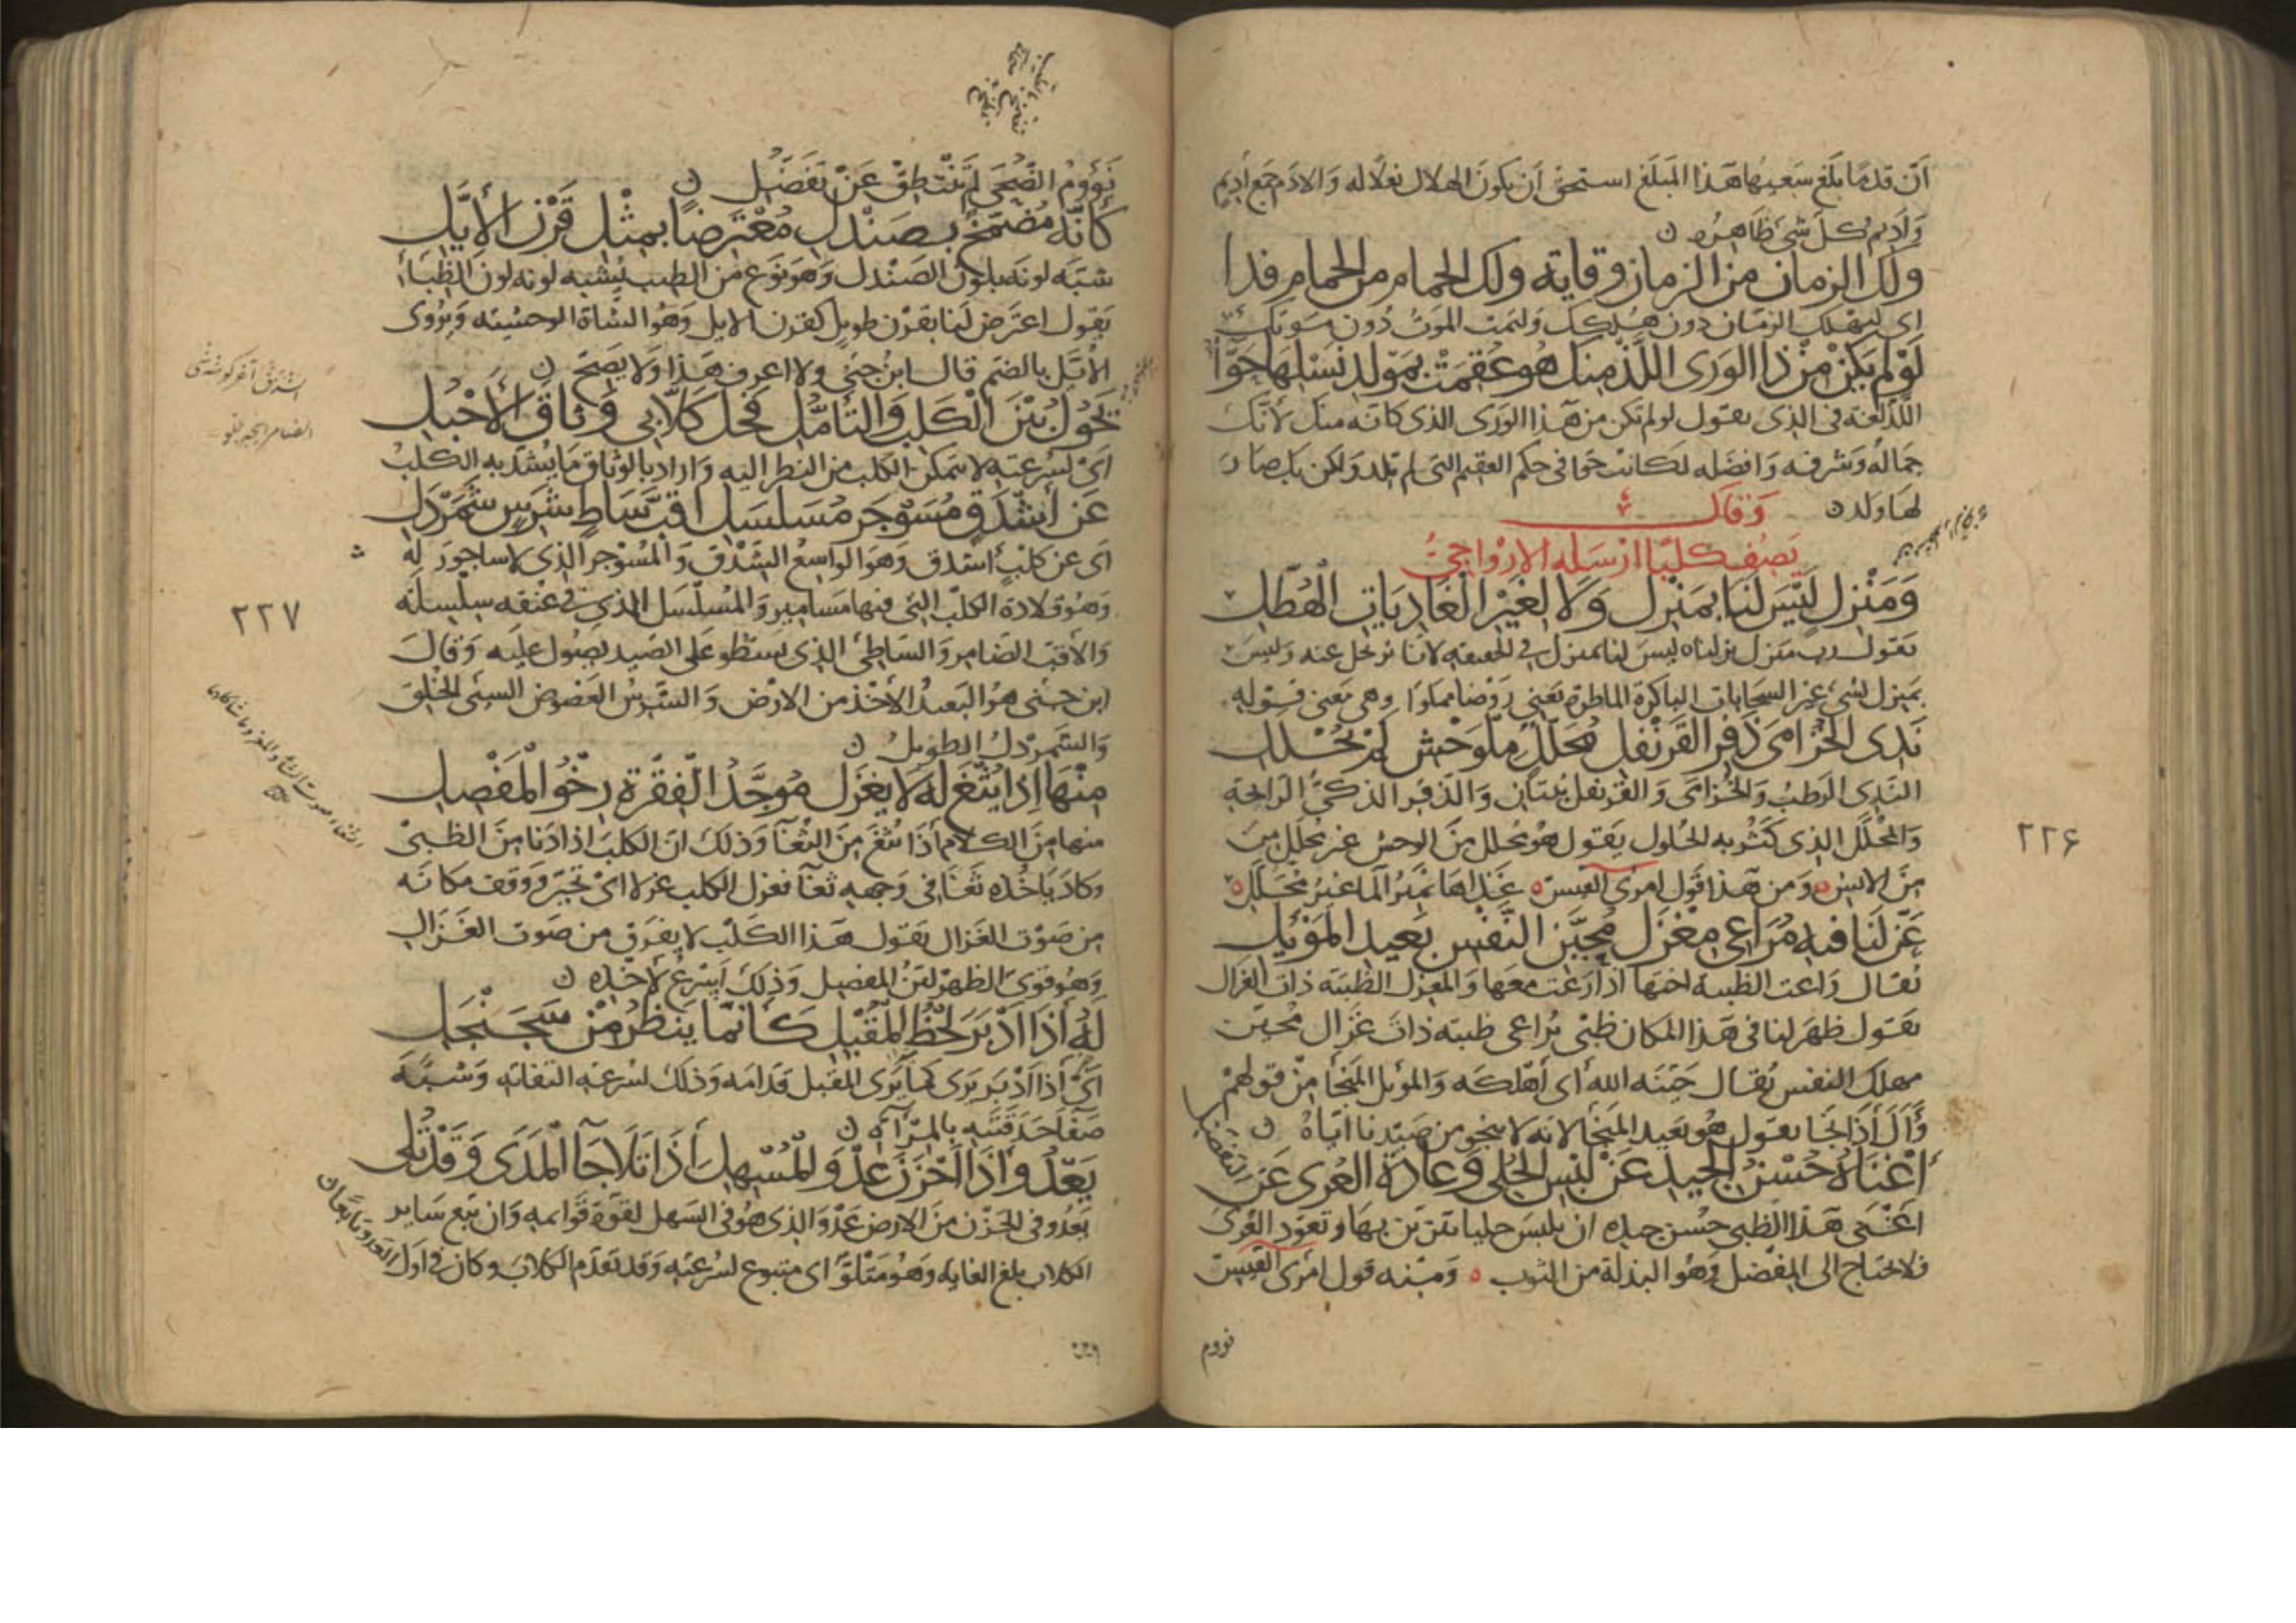 أن قدمًا بلغ سعيها هذا المبلغ استحق أن يكون الهلال نعلا له والادم جمع أديم
وأديم كل شي ظاهره ن
ولك الزمان من الزمان وقاية ولك الحمام من الحمام فدا
اى ليهلك الزمان دون هلكك وليمت الموت دون موتك
لو لم تكن من ذا الورى اللذ منك هو عقمت بمولد نسلها حوّا
اللذ لغة فى الذى يقول لو لم تكن من هذا الورى الذى كانه منك لانك
جماله وشرفه وافضله لكانت حوا فى حكم العقيم التى لم تلد ولكن بك صار
لها ولد ن وقال
يصف كلبا ارسله الاوارجى
ومنزل ليس لنا بمنزل ولا لغير الغاديات الهطل
يقول رب منزل نزلناه ليس لنا بمنزل فى الحقيقه لانا نرحل عنه وليس
بمنزل لشى غير السحابات الباكرة الماطرة يعنى روضا وهى معنى قوله
ندى الخزامى ذفر القرنفل محلل ملوحش لم يحلل
الندى الرطب والخزامى والقرنفل نبتان والذفر الذكى الرايحة
والمحلل الذى كثر به الحلول يقول هو محلل من الوحش غير محلل من
من الانس ومن هذا قول امرى القيس غذاها نمير الما غير محلل
عن لنا فيه مراعى مغزل محين النفس بعيد الموئل
يقال راعت الظبية اختها اذا رعت معها والمغزل الظبية ذات الغزال
يقول ظهر لنا فى هذا المكان ظبى يراعى ظبية ذات غزال محين
مهلك النفس يقال حينه الله اى أهلكه والموئل المنجا من قولهم
وأل أذا نجا يقول هو بعيد المنجا لانه لا ينجو من صيدنا اياه ن
أغناه حسن الجيد عن لبس الحلى وعادة العرى عن
التفضل
اغنى هذا الظبى حسن جيده ان يلبس حليا يتزين بها وتعود العرى
فلا يحتاج الى المفضل وهو البذلة من الثوب ومنه قول امرى القيس
نووم
٢٢۶
نؤوم الضحى لم تنتطق عن تفضل ن
كأنه مضمخ بصندل معترضا بمثل قرن الأيل
شبه لونه بلون الصندل وهو نوع من الطيب يشبه لونه لون الظباء
يقول اعترض لنا بقرن طويل كقرن الايل وهو الشاة الوحشية ويروى
الأيل بالضم قال ابن جنى ولا اعرف هذا ولا يصح ن
تحول بين الكلب والتأمل فحل كلابى وثاق الأحبل
اى لسرعته لا يتمكن الكلب من النظر اليه واراد بالوثاق ما يشد به الكلب
عن أشدق مسوجر مسلسل اقب ساط شرس شمردل
اى عن كلب اشدق وهو الواسع الشدق والمسوجر الذى لا ساجور له
وهو قلادة الكلب التى فيها مسامير والمسلسل الذى فى عنقه سلسلة
والاقب الضامر والساطى الذى يسطو على الصيد يصول عليه وقال
ابن جنى هو البعيد الأخذ من الارض والشرس العضوض السيى الخلق
والشمردل الطويل ن
منها اذا يثغ له لا يغزل موجد الفقرة رخو المفصل
منها من الكلام أذا يثغ من الثغا وذلك ان الكلب اذا دنا من الظبى
وكاد ياخذه ثغا فى وجهه ثغا فغزل الكلب غزلا اى تحير ووقف مكانه
من صوت الغزال يقول هذا الكلب لا يفرق من صوت الغزال
وهو قوى الظهر لين المفصل وذلك أسرع لأخذه ن
له أذا ادبر لحظ المقبل كأنما ينظر من سجنجل
اى أذا أدبر يرى كما يرى المقبل قدامه وذلك لسرعة التفاته وشبه
صفا حدقتيه بالمرآة ن
يعدو اذا احزن عدو المسهل أذا تلا جآ المدى وقد تلى
يعدو فى الحزن من الارض عدو الذى هو فى السهل لقوة قوامه وان تبع ساير
الكلاب بلغ الغاية وهو متلو اى متبوع لسرعته وقد تقدم الكلاب وكان فى اول
العدو تابعا ن
٢٢٧